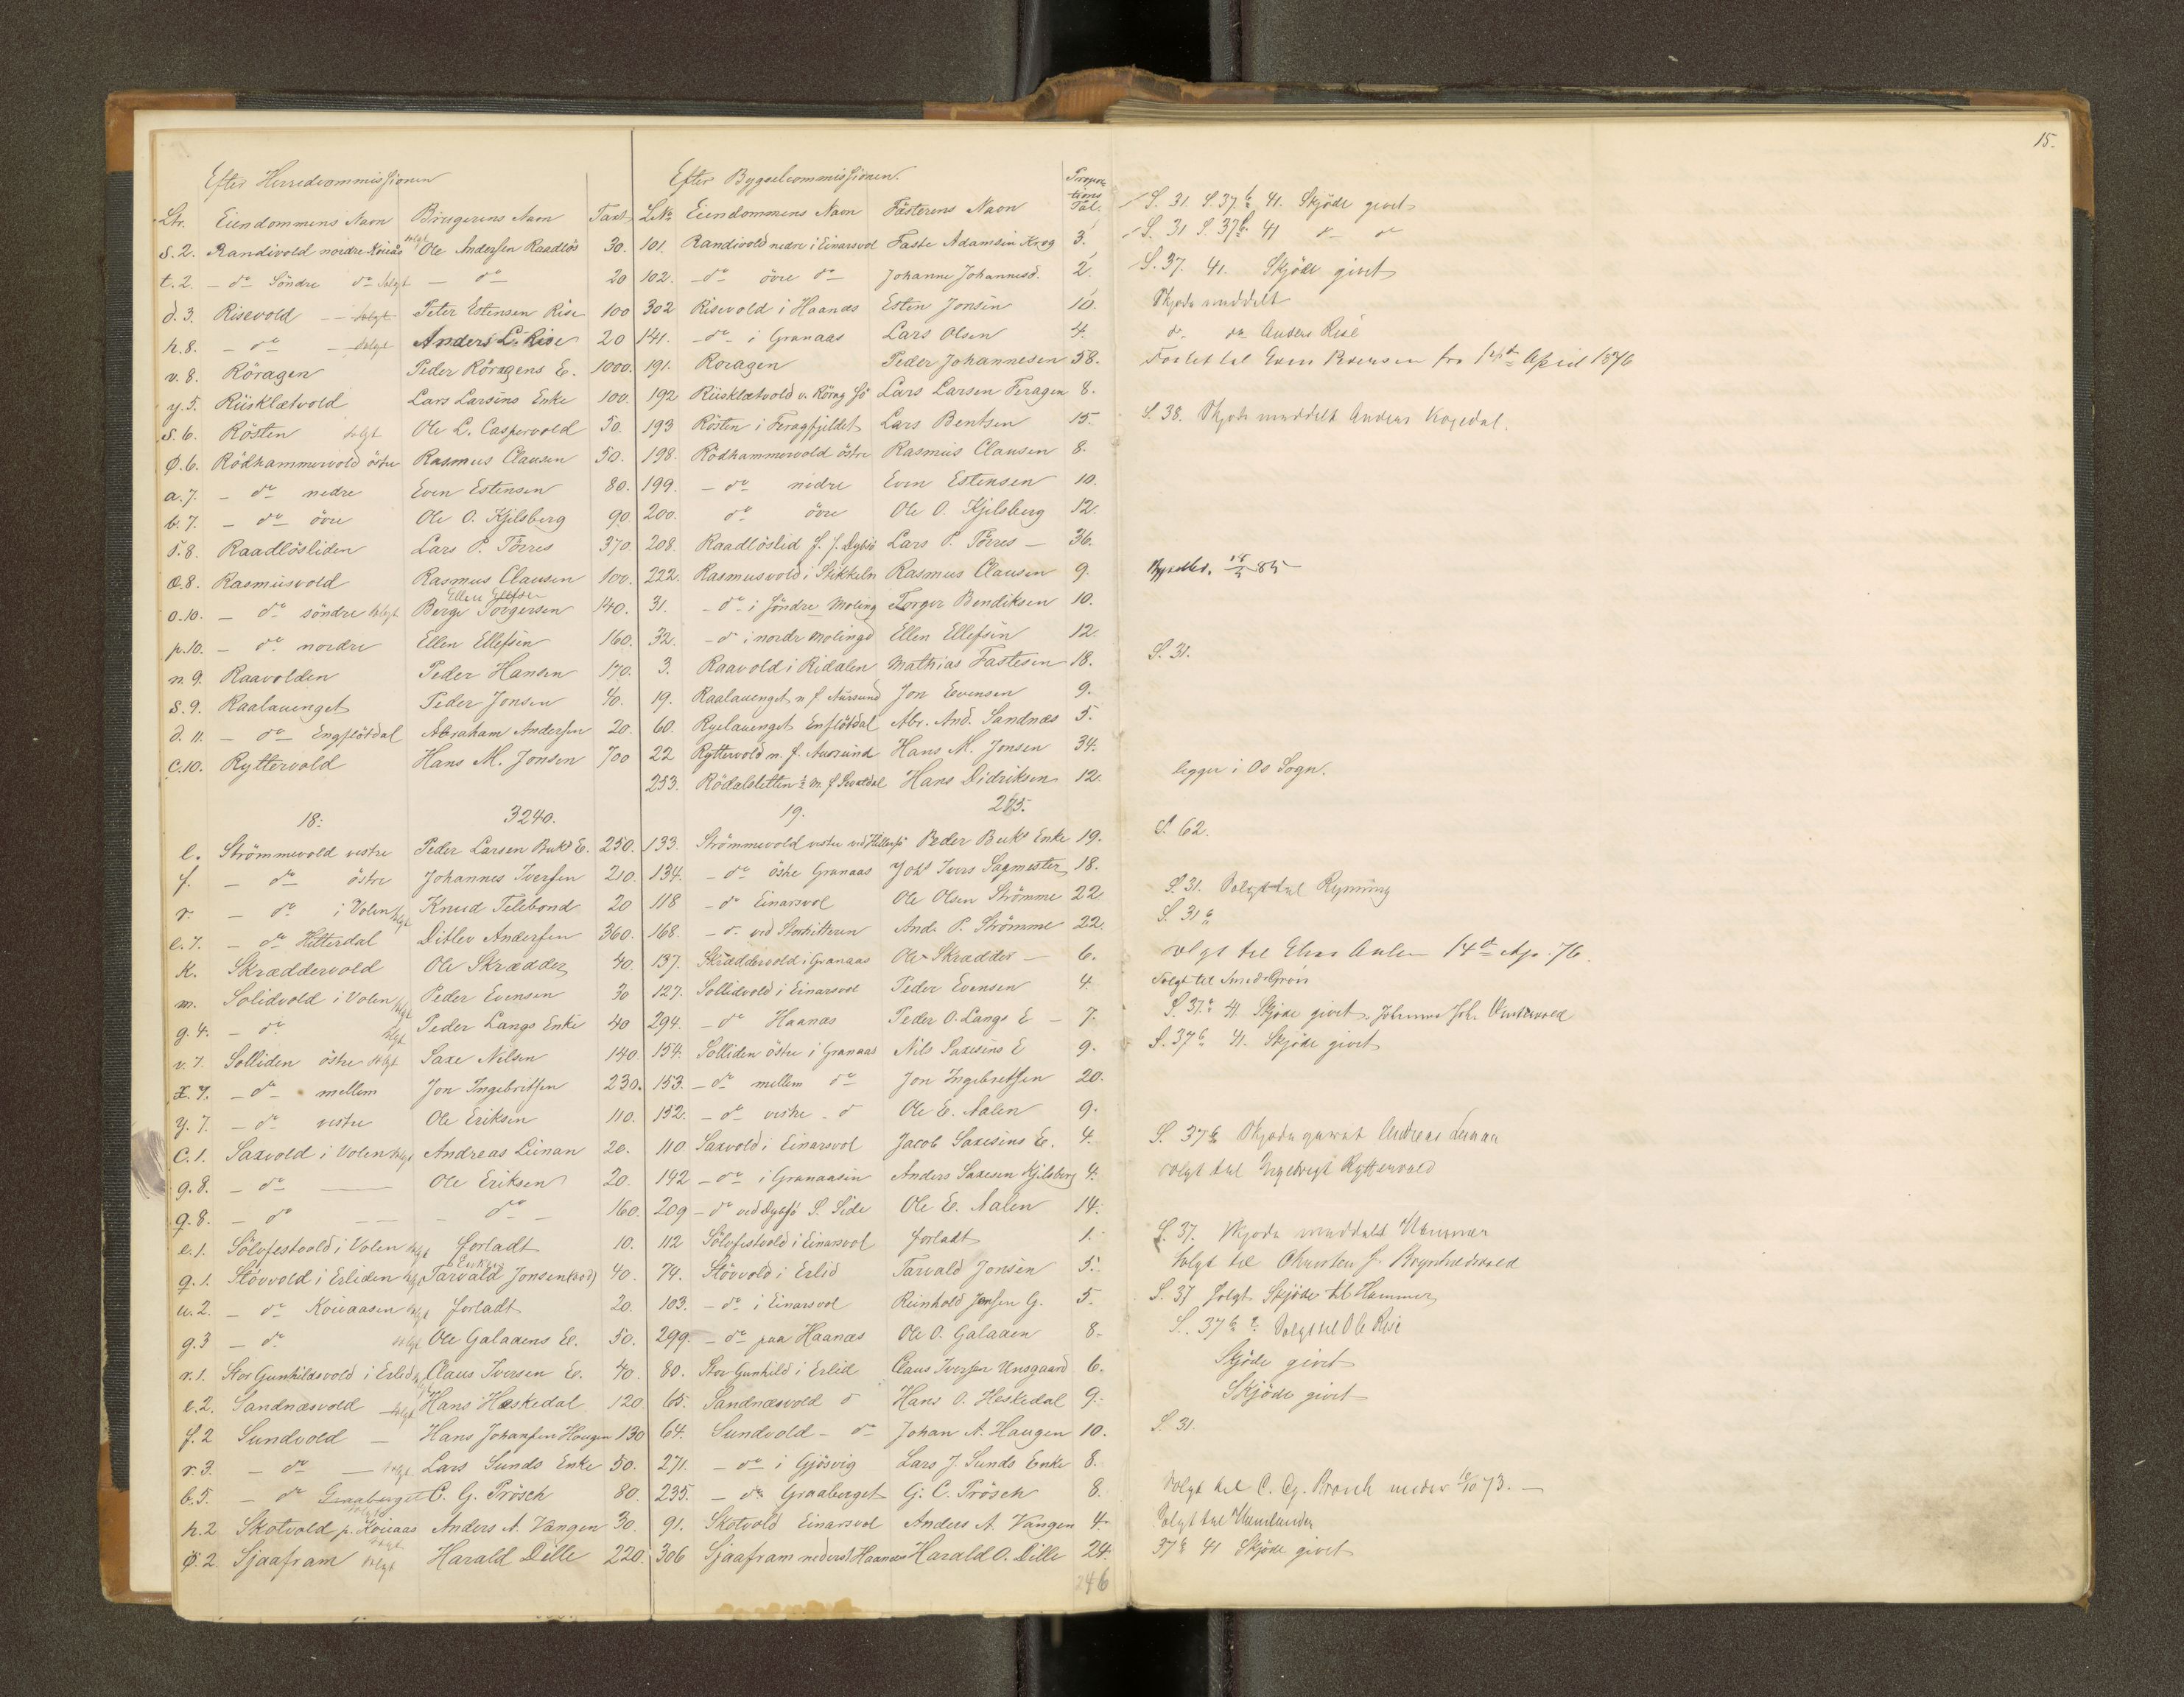 15.
Efter Herredcommissionen
Efter Bygselcommissionen.
Ltr. Eiendommens Navn Brugerens Navn Taxt L.No Eiendommens Navn Fæsterens Navn Proportions Tal.
s.2. Randivold nordre Kouaas solgt Ole Andersen Raadlös 30. 101. Randivold nedre i Einarsvol Faste Adamsen Krog 3. S. 31. S. 37 b 41. Skjöde givet
t.2. - do Söndre do solgt - do - 20 102. - do övre do - Johanne Johannesd. 2. S. 31 S. 37 b. 41 do do
d.3. Risevold - solgt Peter Estensen Rise 100 302 Risevold i Haanæs Esten Jonsen 10. S. 37. 41. Skjöde givet
h.8. - do - solgt Anders L. Rise 20 141. - do - i Granaas Lars Olsen 4. Skjøde meddelt
v.8. Röragen Peder Röragens E. 1000. 191. Roragen Peder Johannesen 58. do. do Anders Rise
y.5. Riisklætvold Lars Larsens Enke 100. 192 Riisklætvold v. Rörag Sö Lars Larsen Feragen 8. April 1876
s.6. Rösten solgt Ole L. Caspervold 50. 193 Rösten i Feragfjeldet Lars Bentsen 15. S. 38. Skjøde meddelt Anders
ø.6. Rödhammervold östre Rasmus Clausen 50. 198. Rödhammervold östre Rasmus Clausen 8.
a.7. - do - nedre Even Estensen 80. 199. - do - nedre Even Estensen 10.
b.7. - do - övre Ole O. Kjelsberg 90. 200. do övre Ole O. Kjelsberg 12.
s.8. Raadlösliden Lars P. Törres 370. 208. Raadlöslid Lars P. Törres - 36.
æ.8. Rasmusvold Rasmus Clausen 100. 222. Rasmusvold i Stikkeln Rasmus Clausen 9. 85
o.10. - do söndre solgt Ellen Ellefsen Berge Torgersen 140. 31. - do - i Söndre Moling Torger Bendiksen 10.
p.10. - do nordre Ellen Ellefsen 160. 32. - do i nordr Molingd Ellen Ellefsen 12.
n.9. Raavolden Peder Hansen 170. 3. Raavold i Ridalen Mathias Fastesen 18. S. 31.
s.9. Raalauenget Peder Jonsen 40. 19. Raalauenget n. f. Aursund Jon Evensen 9.
d.11. - do - Engflötdal Abraham Andersen 20. 60. Ryelauenget Enflötdal Abr. And. Sandnæs 5.
c.10. Ryttervold Hans M. Jonsen 700 22 Ryttervold n. f. Aursund Hans M. Jonsen 34.
253. Rödalsletten Hans Didriksen 12. ligger i Os Sogn.
18: 3240. 19. 285.
e. Strömmevold vestre Peder Larsen Buks E. 250. 133. Strömmevold vestre ved Hittersjö Peder Buks Enke 19. S. 62.
f. - do - östre Johannes Iversen 210. 134. - do - östre Granaas Johs Ivers Sagmester 18.
r. - do - i Volen solgt Knud Telebond 20 118 - do Einarsvol Ole Olsen Strömme 22 S. 31. Solgt til Rynning
e.7. - do Hitterdal Ditlev Andersen 360. 168. - do. ved Storhitteren And. P. Strömme 22. S. 31 b
k. Skræddervold Ole Skrædder 40. 137. Skræddervold i Granaas Ole Skrædder - 6. solgt til Elias 14de Apr. 76.
m. Solidvold i Volen solgt Peder Evensen 30 127. Sollidvold i Einarsvol Peder Evensen 4. Solgt til Smed Grøn
g.4. - do. solgt Peder Langs Enke 40 294. - do Haanæs Peder O. Langs E - 7. S. 37. 41 Skjöde givet
v.7. Solliden östre solgt Saxe Nilsen 140. 154. Solliden östre i Granaas Nils Saxesens E 9. S. 37 b 41. Skjöde givet
x.7. - do - mellem Jon Ingebritsen 230. 153. - do mellem do Jon Ingebretsen 20.
y.7. - do vestre Ole Eriksen 110. 152. - do vestre - do Ole E. Nalen 9.
c.1. Saxvold i Volen solgt Andreas Linan 20. 110. Saxvold i Einarsvol Jacob Saxesens E. 4. S. 37 b Skjøde Andreas
g.8. - do - Ole Eriksen 20. 142 - do - i Granaasen Anders Saxesen Kjelsberg 4. solgt til Ingebrigt Ryttervold
q.8. - do - - do - 160. 209 - do ved S. Side Ole E. Nalen 14.
e.1. Sölvfestvold i Volen solgt forladt 10. 112 Sölvfestvold i Einarsvol forladt 1. S. 37. Skjøde meddelt
q.1. Stövvold i Erliden solgt Enken Tarvald Jonsen (död) 40. 74. Stövvold i Erlid Tarvald Jonsen 5. Solgt til
u.2. - do Kouaasen solgt forladt 20. 103. - do - i Einarsvol Reinhold Jensen G. 5. S. 37 solgt Skjöde til Hammer
g.3 - do solgt Ole Galaaens E. 50. 299. - do paa Haanæs Ole O. Galaaen 8. S. 37 b Solgt til Ole Rise
r.1. Stor Gunhildsvold i Erlid Claus Iversen E. 40. 80. Stor Gunhild i Erlid Claus Iversen Unsgaard 6. Skjöde givet
e.2. Sandnæsvold - solgt Hans Hæskedal 120. 65. Sandnæsvold do Hans O. Heskedal 9. Skjöde givet
f.2 Sundvold - Hans Johansen Haugen 130 64. Sundvold - do - Johan A. Haugen 10. S. 31.
r.3. - do - solgt Lars Sunds Enke 50. 271. - do i Gjösvig Lars J. Sunds Enke 8.
b.5. - do Graaberget C. G. Prösch 80. 235. - do Graaberget G. C. Prösch 8. Solgt til C. G. Prosch 73. -
h.2 Skotvold p. Kouaas solgt Anders A. Vangen 30. 91. Skotvold Einarsvol Anders A. Vangen 4. Solgt til
ø.2. Sjaafram solgt Harald Dille 220. 306 Sjaafram nederst Haanæs Harald O. Dille 24. 37 b 41 Skjöde givet
246